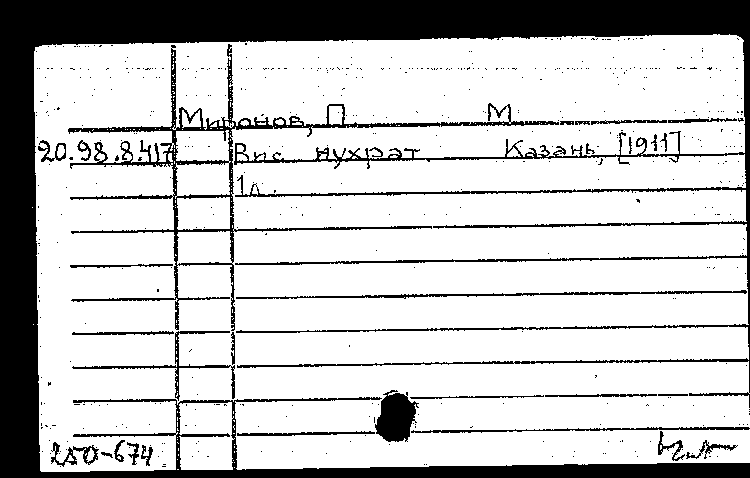 Миронов, П М
20.98.8.417 Вис нухрат. Казань, [1911]
1л.
250-674